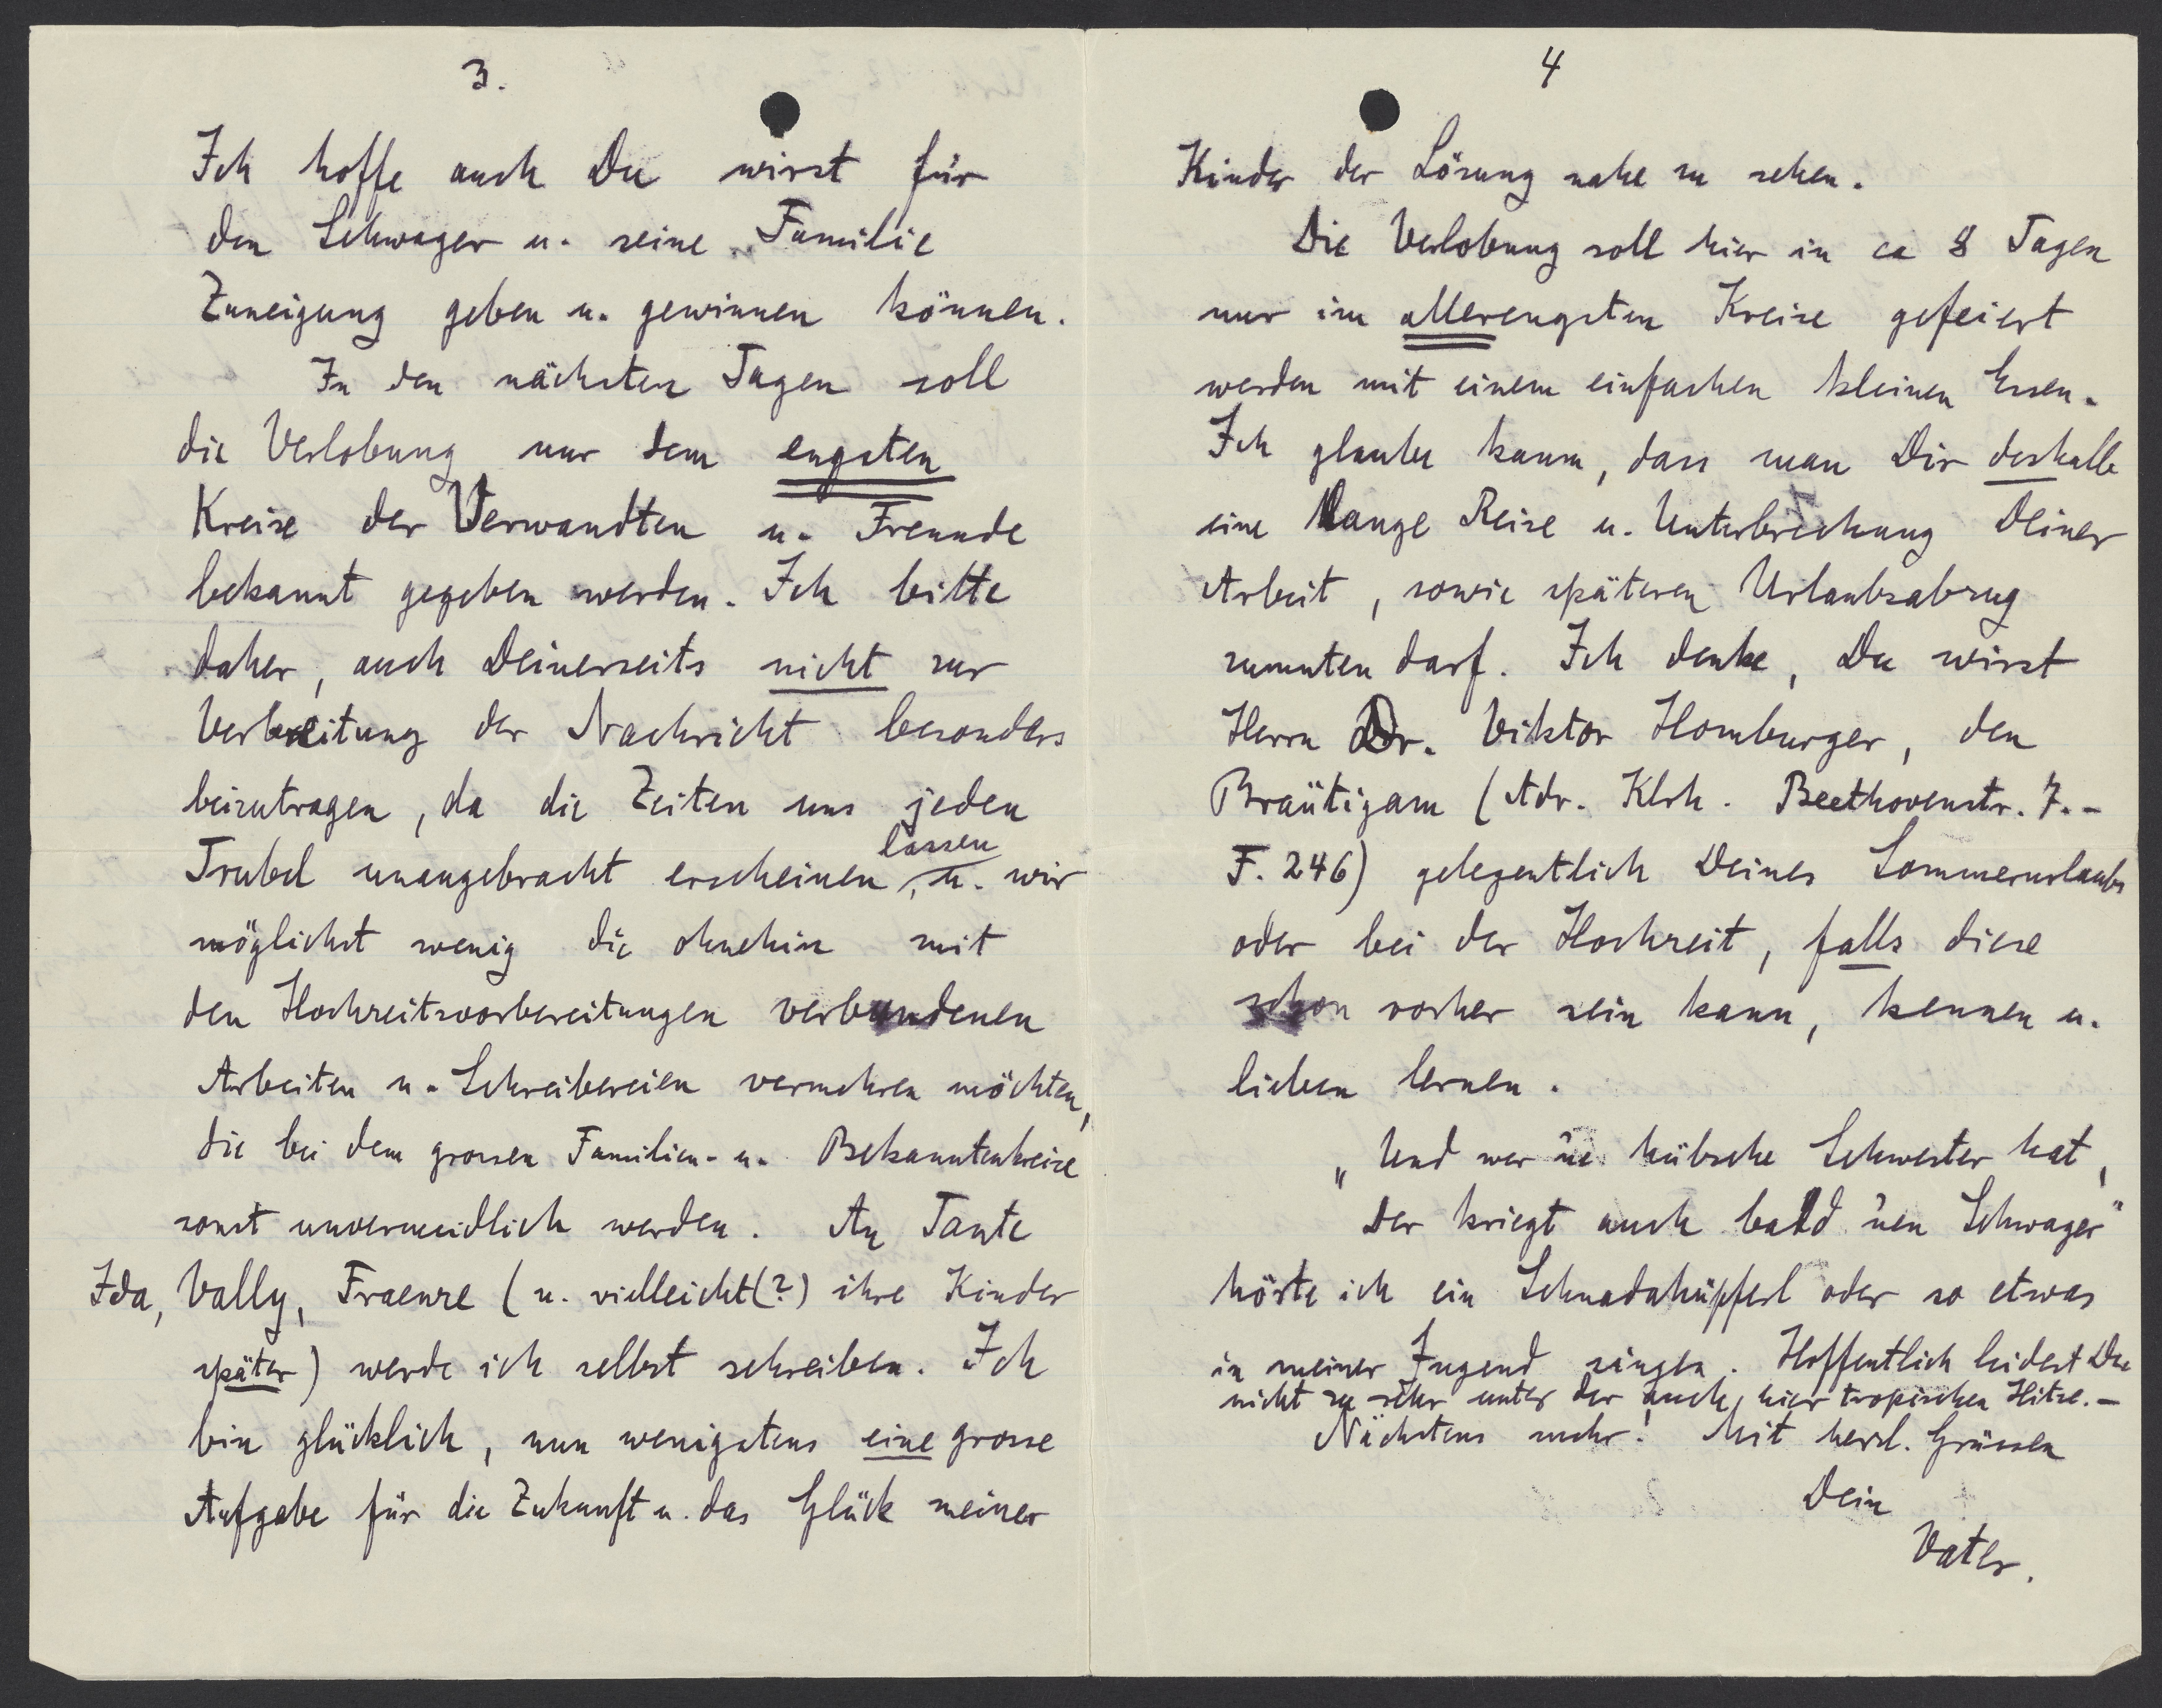 3.
Ich hoffe auch Du wirst für
den Schwager u. seine Familie
Zuneigung geben u. gewinnen können.
In den nächsten Tagen soll
die Verlobung nur dem engsten
Kreise der Verwandten u. Freunde
bekannt gegeben werden. Ich bitte
daher, auch Deinerseits nicht zur
Verbreitung der Nachricht besonders
beizutragen, da die Zeiten uns jeden
Trubel unangebracht erscheinen lassen, u. wir
möglichst wenig die ohnehin mit
den Hochzeitsvorbereitungen verbundenen
Arbeiten u. Schreibereien vermehren möchten,
die bei dem grossen Familien- u. Bekanntenkreise
sonst unvermeidlich werden. An Tante
Ida, Vally, Fraenze (u. vielleicht(?) ihre Kinder
später) werde ich selbst schreiben. Ich
bin glücklich, nun wenigstens eine grosse
Aufgabe für die Zukunft u. das Glück meiner
4
Kinder der Lösung nahe zu sehen.
Die Verlobung soll hier in ca 8 Tagen
nur im allerengsten Kreise gefeiert
werden mit einem einfachen kleinen Essen.
Ich glaube kaum, dass man Dir deshalb
eine lange Reise u. Unterbrechung Deiner
Arbeit, sowie späteren Urlaubsabzug
zumuten darf. Ich denke, Du wirst
Herrn Dr. Viktor Homburger, den
Bräutigam (Adr. Klrh. Beethovenstr. 7.-
F. 246) gelegentlich Deines Sommerurlaubs
oder bei der Hochzeit, falls diese
schon vorher sein kann, kennen u.
lieben lernen.
„Und wer 'ne hübsche Schwester hat,
Der kriegt auch bald 'nen Schwager"
hörte ich ein Schnadahüpferl oder so etwas
in meiner Jugend singen. Hoffentlich leidest Du
nicht zu sehr unter der auch hier tropischen Hitze.-
Nächstens mehr! Mit herzl. Grüssen
Dein
Vater.